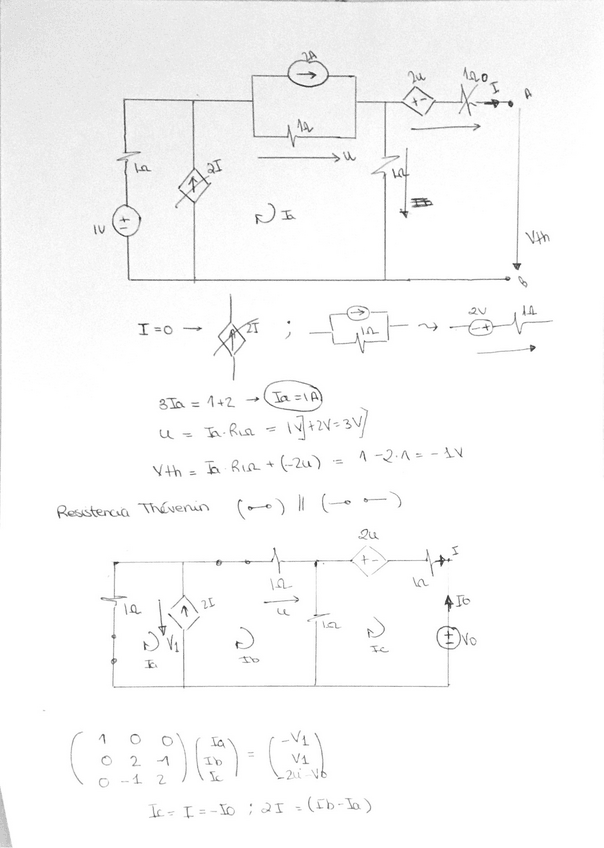 2A
2u
1Ω
I
A
1Ω
u
1Ω
2I
1Ω
1V
Ia
Vth
B
I=0 → 2I ; 1Ω ⇝ 2V 1Ω
3Ia = 1+2 → Ia=1A
u = Ia·R1Ω = 1V]+2V=3V]
Vth = Ia·R1Ω + (-2u) = 1-2·1 = -1V
Resistencia Thévenin ( ) || ( )
2u
I
1Ω
1Ω
1Ω
2I
u
1Ω
V1
Io
V0
Ia
Ib
Ic
( 1 0 0 ) ( Ia ) = ( -V1 )
( 0 2 -1 ) ( Ib ) ( V1 )
( 0 -1 2 ) ( Ic ) ( -2u-V0 )
Ic = I = -Io ; 2I = (Ib-Ia)